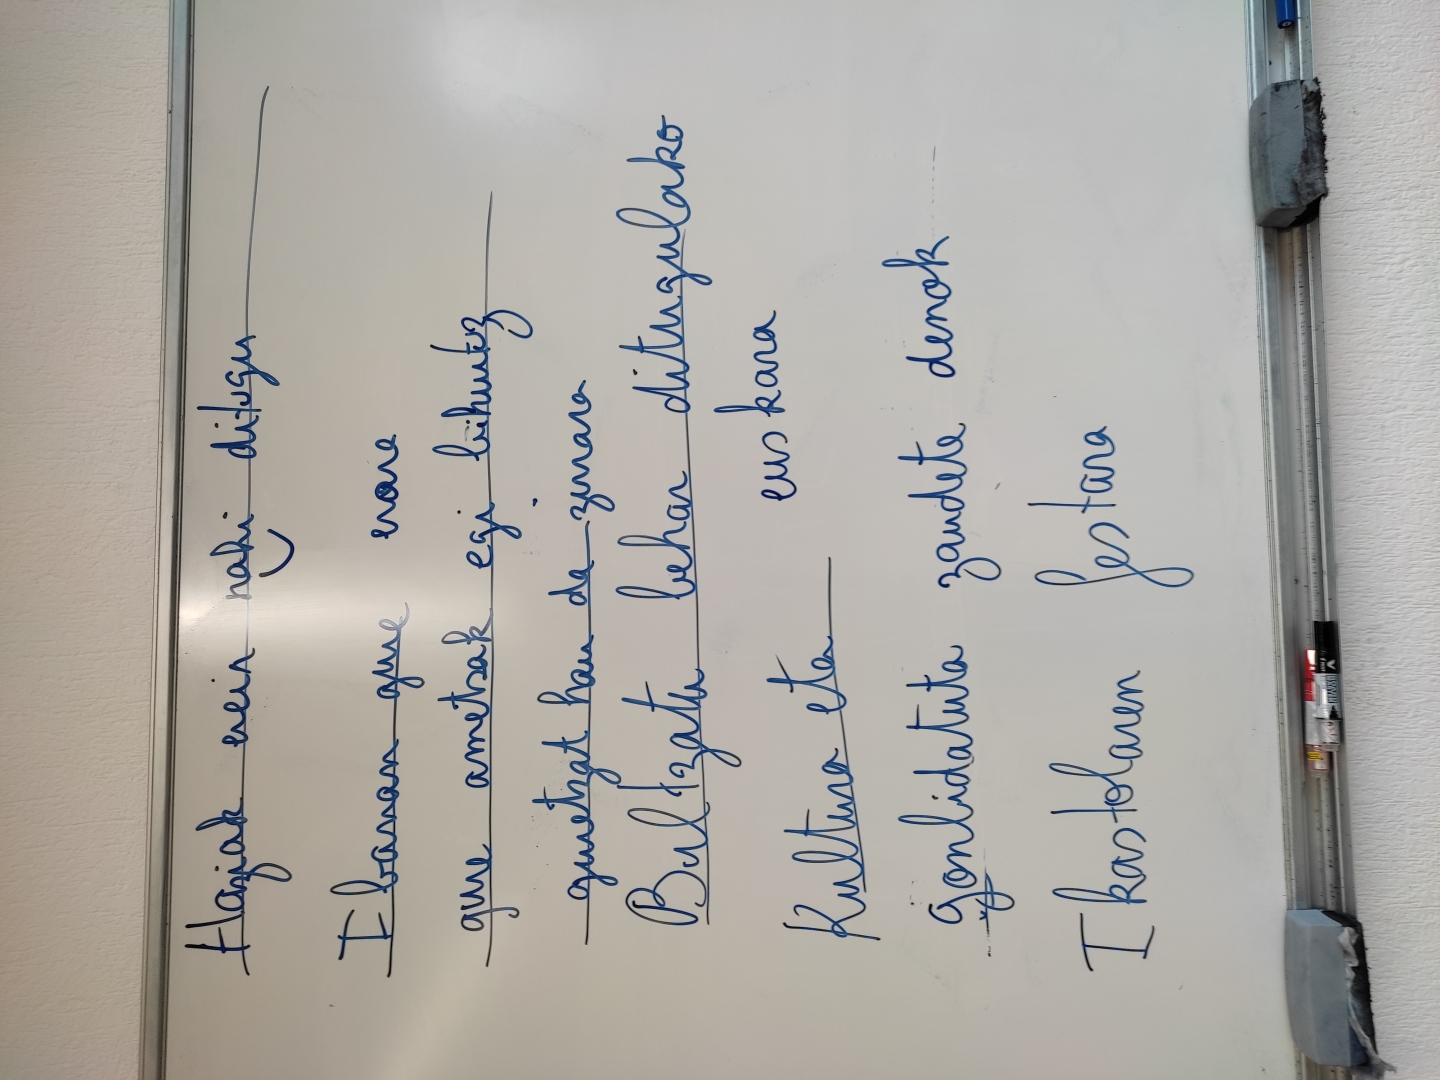 Haziak erein nahi ditugu
Ibarran gure
gure ametsak egi bihurtuz
guretzat hau da
Bultzatu behar ditugulako
Kultura eta euskara
gonbidatuta zaudete denok
Ikastolaren festara